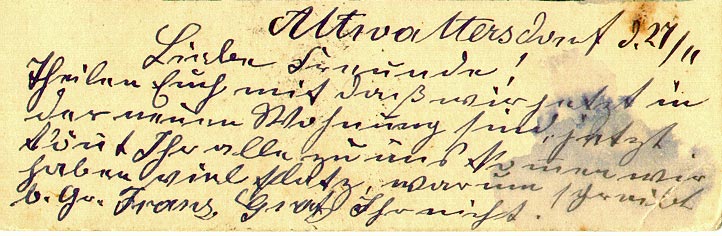 Altwaltersdorf d. 27/11
Liebe Freunde!
Theilen Euch mit daß wir jetzt in
der neuen Wohnung sind, jetzt
könt Ihr alle zu uns komen wir
haben viel Platz, warum schreibt
b. Gr. Franz Graf Ihr nicht.